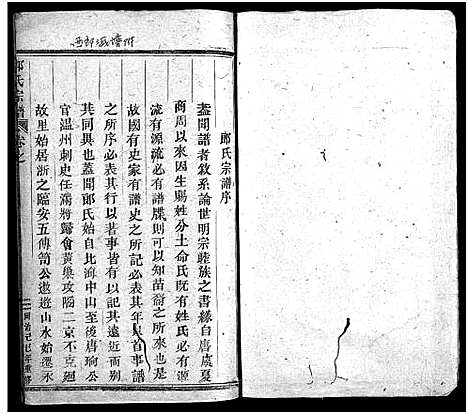 郎氏宗譜序
蓋聞譜者敘系論世明宗睦族之書緣自唐虞夏
商周以來因生賜姓分土命氏既有姓氏必有源
流有源流必有譜牒則可以知苗裔之所從來也
故國有史家有譜史之所記必表其年與首事譜
之所序必表其行以著事皆有以記其遠近而別
其同異也蓋聞郎氏始自北海中山至後唐珣公
官溫州刺史任滿將歸會黃巢攻陷二京不克廻
故里始居浙之臨安五傳笥公遨遊山水始遷水
郎氏宗譜 卷之
同治元 年重修